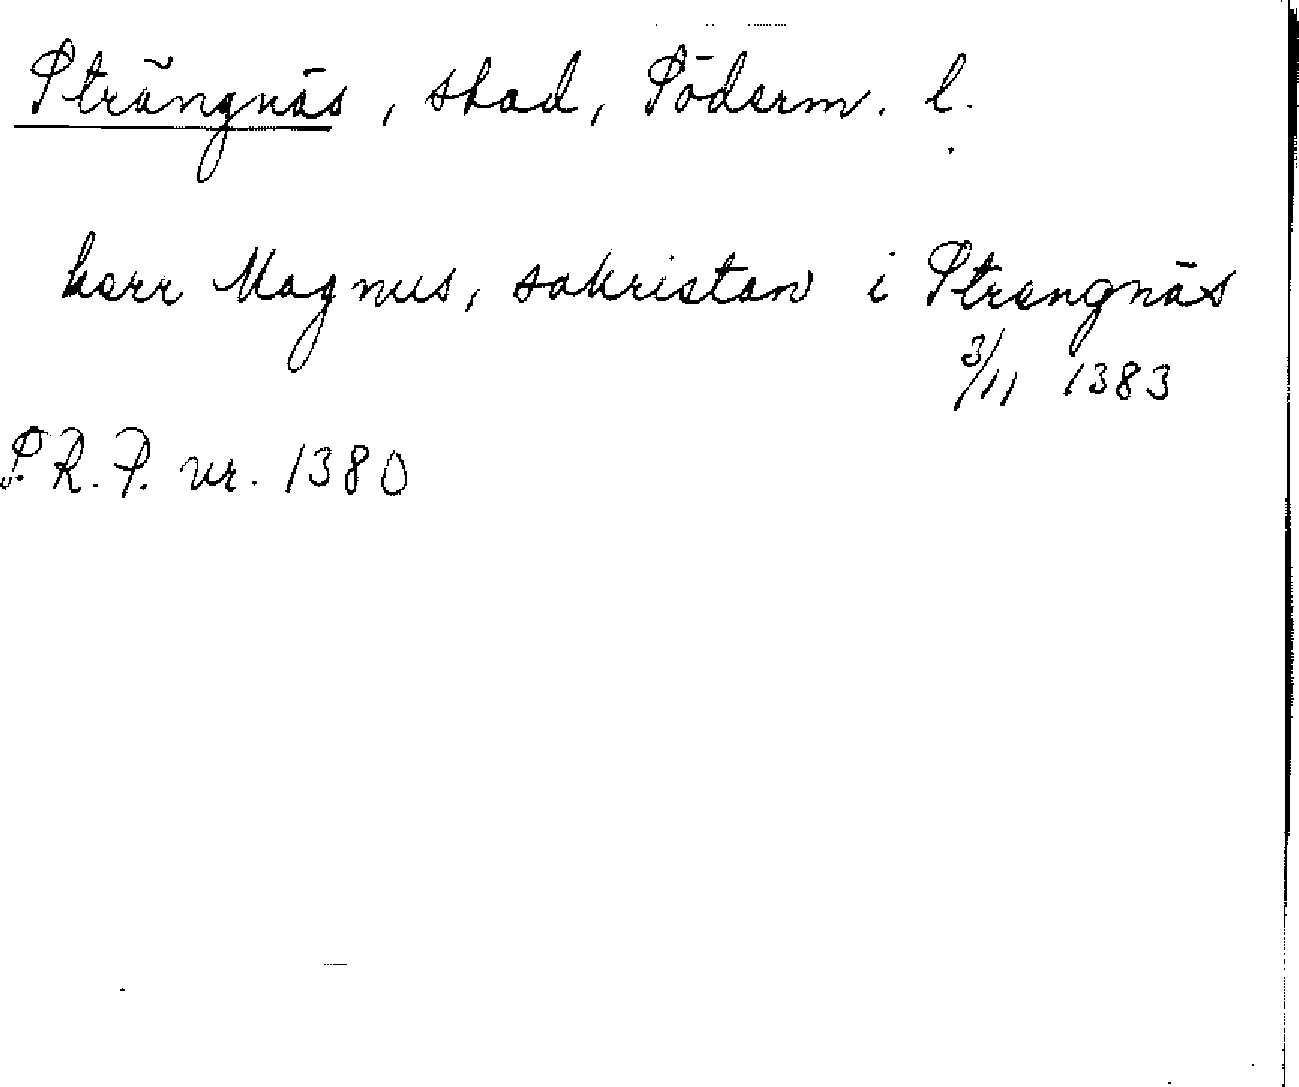 Strängnäs, stad, Söderm. l.
herr Magnus, sakristan i Strengnäs
3/11 1383
S.R.P. nr. 1380